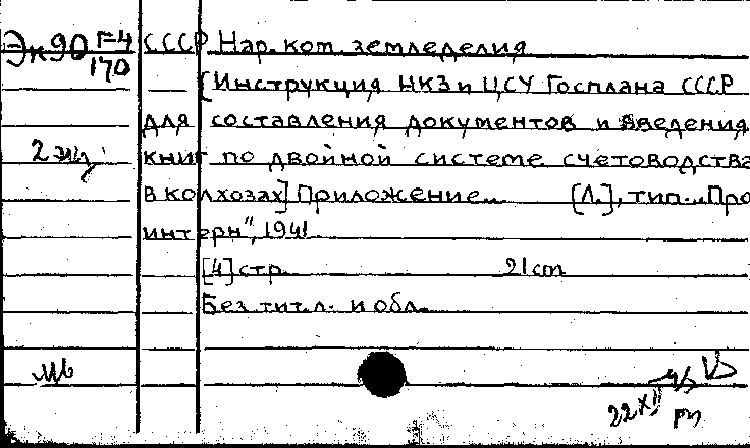 Эк90 Г-4/170 СССР Нар. ком. земледелия
[Инструкция НКЗ и ЦСУ Госплана СССР
для составления документов и введения
2 экз. книг по двойной системе счетоводства
в колхозах] Приложение... [Л.], тип. „Про
интерн", 1941.
[4] стр. 21 cm
Без тит. л. и обл.
22 XII